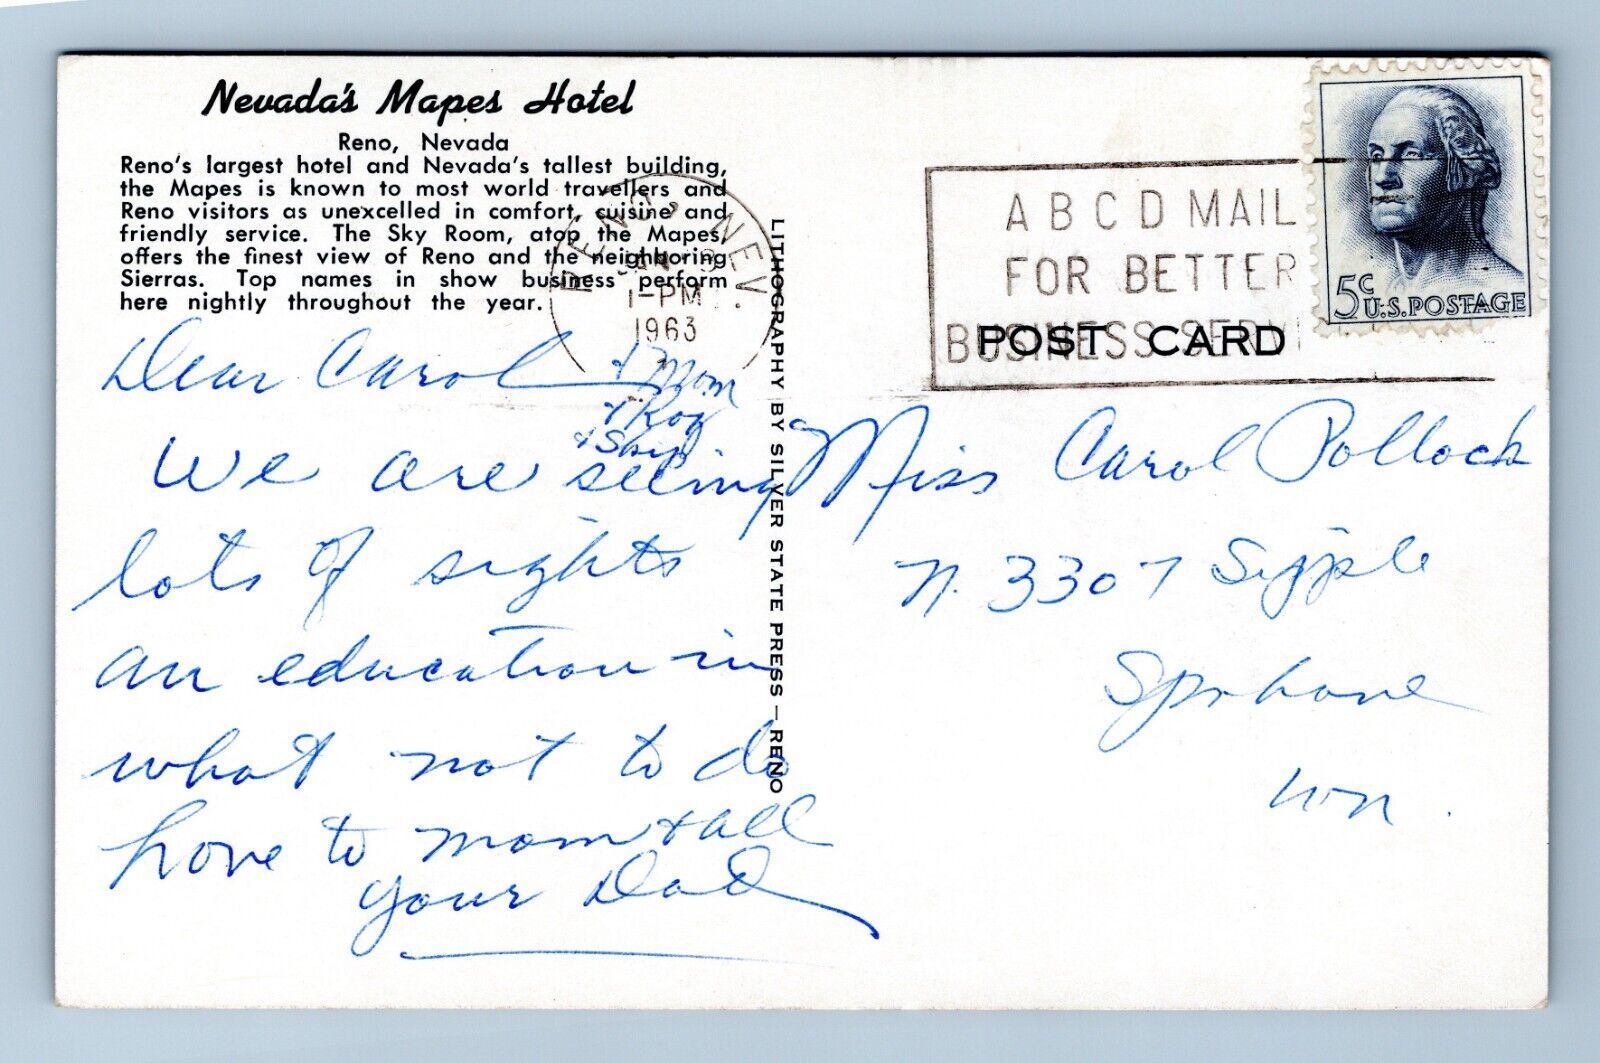 Nevada's Mapes Hotel
Reno, Nevada
Reno's largest hotel and Nevada's tallest building,
the Mapes is known to most world travellers and
Reno visitors as unexcelled in comfort, cuisine and
friendly service. The Sky Room, atop the Mapes,
offers the finest view of Reno and the neighboring
Sierras. Top names in show business perform
here nightly throughout the year.
RENO, NEV.
1-PM
1963
A B C D MAIL
FOR BETTER
BUSINESS SERVI
5c
U.S. POSTAGE
POST CARD
LITHOGRAPHY BY SILVER STATE PRESS — RENO
Dear Carol
+ Mom
+ Roy
+ Skip
We are seeing
lots of sights
an education in
what not to do
Love to mom + all
your Dad
Miss Carol Pollock
N. 3307 Sipple
Spokane
Wn.